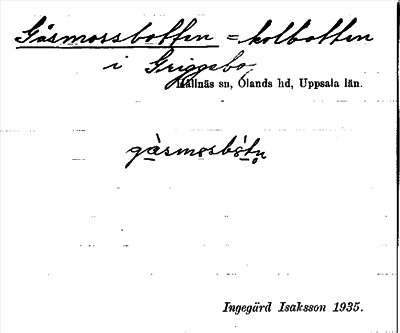 Gåsmossbotten = kolbotten
i Griggebo,
Hållnäs sn, Ölands hd, Uppsala län.
gàsmosbòtn̥
Ingegärd Isaksson 1935.